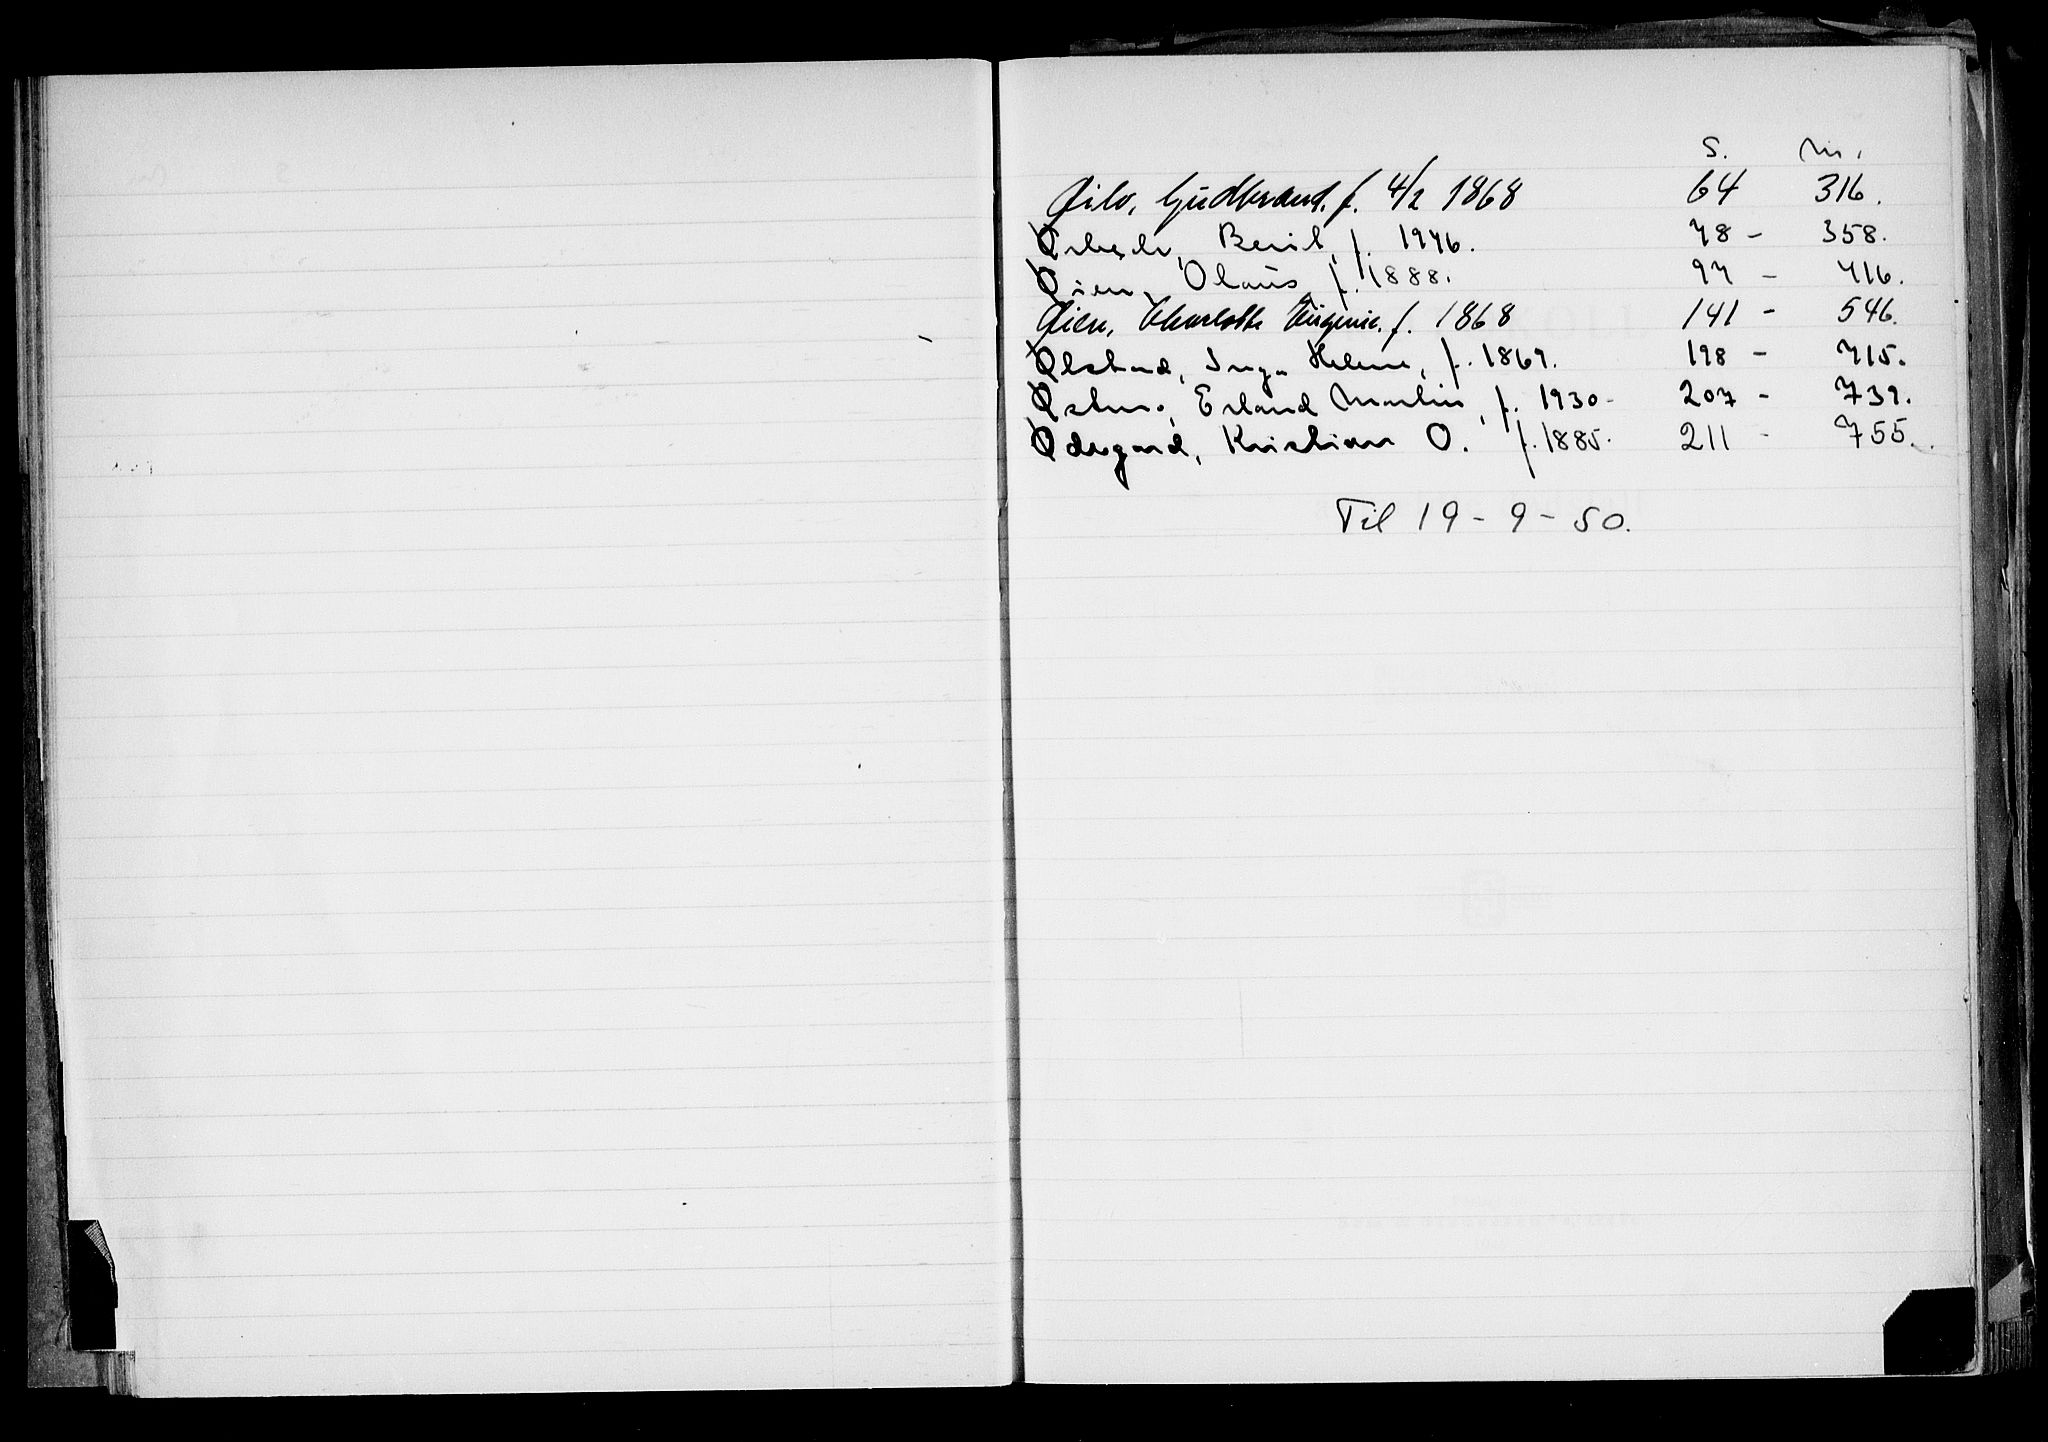 S. Nr.
Gudbrand. f. 4/2 1868 64 316.
Berit, f. 1946. 78 - 358.
Øien, Olaus f. 1888. 97 - 416.
Øien, Charlotte Eugenie. f. 1868 141 - 546.
Ølstad, Inga Helene, f. 1869. 198 - 715.
Erland Martin, f. 1930- 207 - 739.
Ødegard, Kristian O. f. 1885. 211 - 755.
Til 19-9-50.